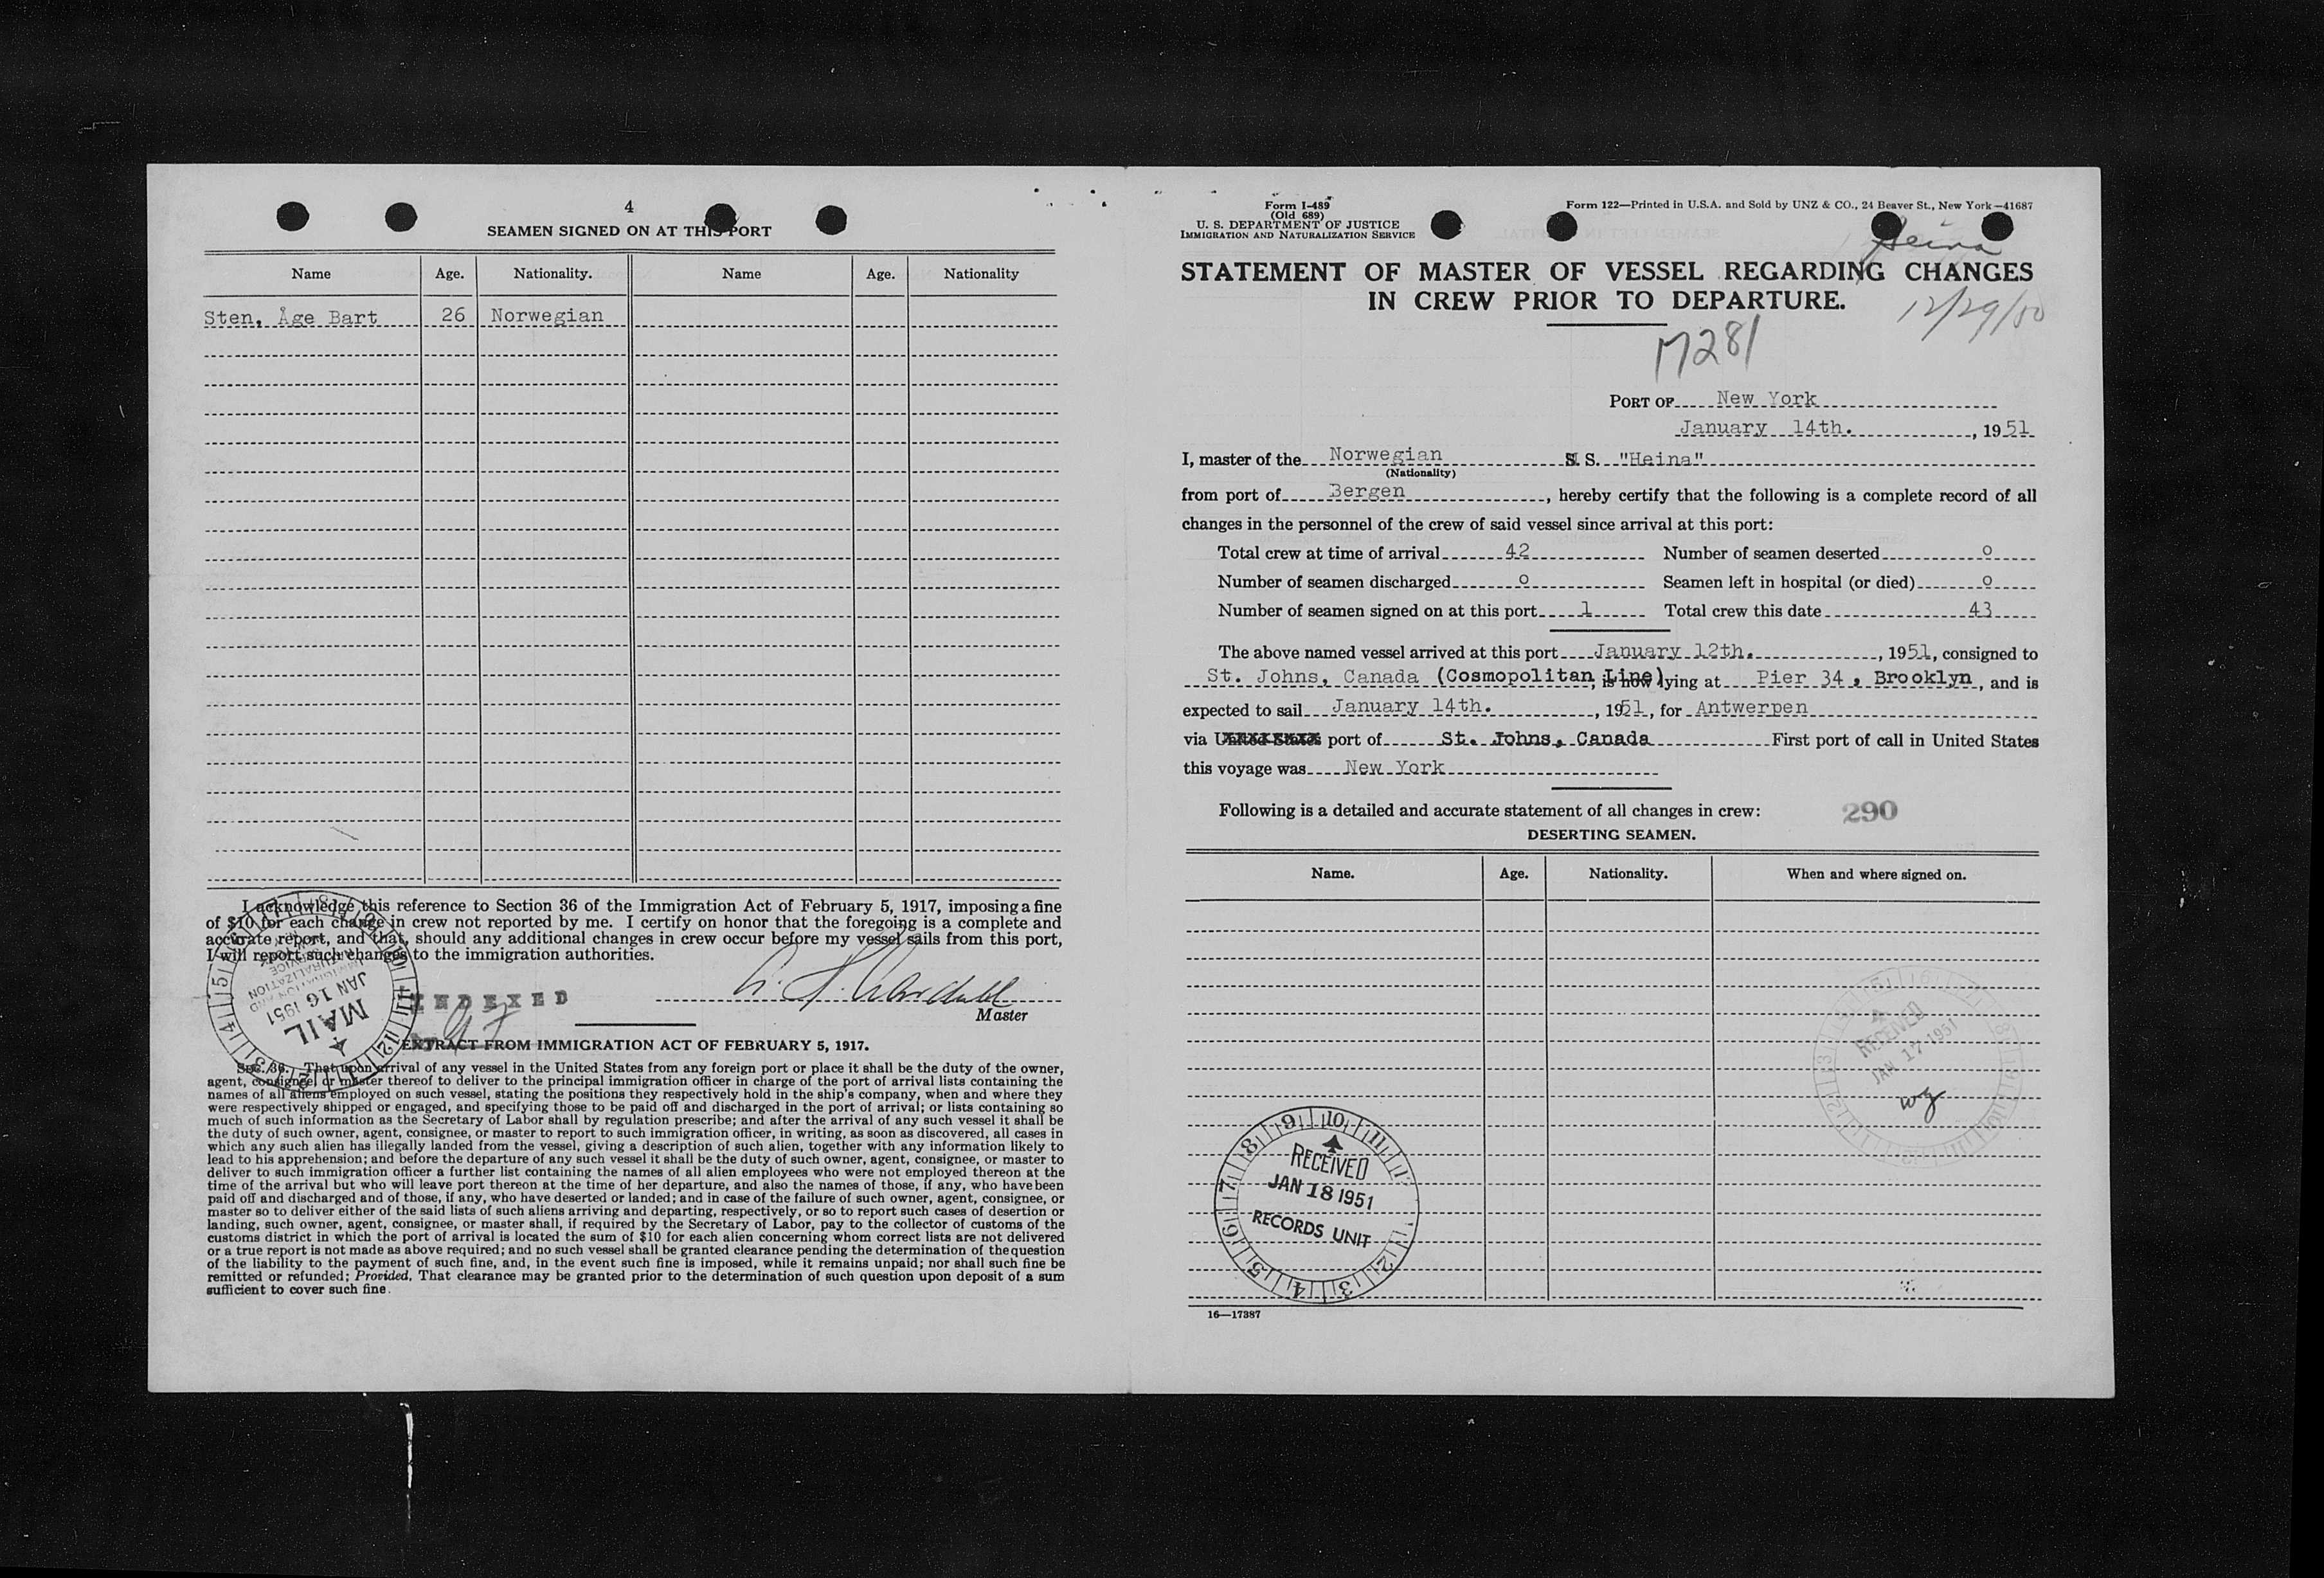 4
SEAMEN SIGNED ON AT THIS PORT
Name Age. Nationality. Name Age. Nationality
Sten, Åge Bart 26 Norwegian
I acknowledge this reference to Section 36 of the Immigration Act of February 5, 1917, imposing a fine
of $10 for each change in crew not reported by me. I certify on honor that the foregoing is a complete and
accurate report, and that, should any additional changes in crew occur before my vessel sails from this port,
I will report such changes to the immigration authorities.
MAIL
JAN 16 1951
INDEXED
Master
EXTRACT FROM IMMIGRATION ACT OF FEBRUARY 5, 1917.
SEC. 36. That upon arrival of any vessel in the United States from any foreign port or place it shall be the duty of the owner,
agent, consignee, or master thereof to deliver to the principal immigration officer in charge of the port of arrival lists containing the
names of all aliens employed on such vessel, stating the positions they respectively hold in the ship's company, when and where they
were respectively shipped or engaged, and specifying those to be paid off and discharged in the port of arrival; or lists containing so
much of such information as the Secretary of Labor shall by regulation prescribe; and after the arrival of any such vessel it shall be
the duty of such owner, agent, consignee, or master to report to such immigration officer, in writing, as soon as discovered, all cases in
which any such alien has illegally landed from the vessel, giving a description of such alien, together with any information likely to
lead to his apprehension; and before the departure of any such vessel it shall be the duty of such owner, agent, consignee, or master to
deliver to such immigration officer a further list containing the names of all alien employees who were not employed thereon at the
time of the arrival but who will leave port thereon at the time of her departure, and also the names of those, if any, who have been
paid off and discharged and of those, if any, who have deserted or landed; and in case of the failure of such owner, agent, consignee, or
master so to deliver either of the said lists of such aliens arriving and departing, respectively, or so to report such cases of desertion or
landing, such owner, agent, consignee, or master shall, if required by the Secretary of Labor, pay to the collector of customs of the
customs district in which the port of arrival is located the sum of $10 for each alien concerning whom correct lists are not delivered
or a true report is not made as above required; and no such vessel shall be granted clearance pending the determination of the question
of the liability to the payment of such fine, and, in the event such fine is imposed, while it remains unpaid; nor shall such fine be
remitted or refunded; Provided, That clearance may be granted prior to the determination of such question upon deposit of a sum
sufficient to cover such fine.
Form I-489
(Old 689)
U. S. DEPARTMENT OF JUSTICE
IMMIGRATION AND NATURALIZATION SERVICE
Form 122—Printed in U.S.A. and Sold by UNZ & CO., 24 Beaver St., New York—41687
Heina
STATEMENT OF MASTER OF VESSEL REGARDING CHANGES
IN CREW PRIOR TO DEPARTURE.
12/29/50
17281
PORT OF New York
January 14th. , 1951
I, master of the Norwegian S. S. "Heina"
(Nationality)
from port of Bergen , hereby certify that the following is a complete record of all
changes in the personnel of the crew of said vessel since arrival at this port:
Total crew at time of arrival 42 Number of seamen deserted o
Number of seamen discharged o Seamen left in hospital (or died) o
Number of seamen signed on at this port 1 Total crew this date 43
The above named vessel arrived at this port January 12th. , 1951, consigned to
St. Johns, Canada (Cosmopolitan Line), is now lying at Pier 34, Brooklyn, and is
expected to sail January 14th. , 1951, for Antwerpen
via United States port of St. Johns, Canada First port of call in United States
this voyage was New York
Following is a detailed and accurate statement of all changes in crew: 290
DESERTING SEAMEN.
Name. Age. Nationality. When and where signed on.
RECEIVED
JAN 17 1951
wz
RECEIVED
JAN 18 1951
RECORDS UNIT
16—17387